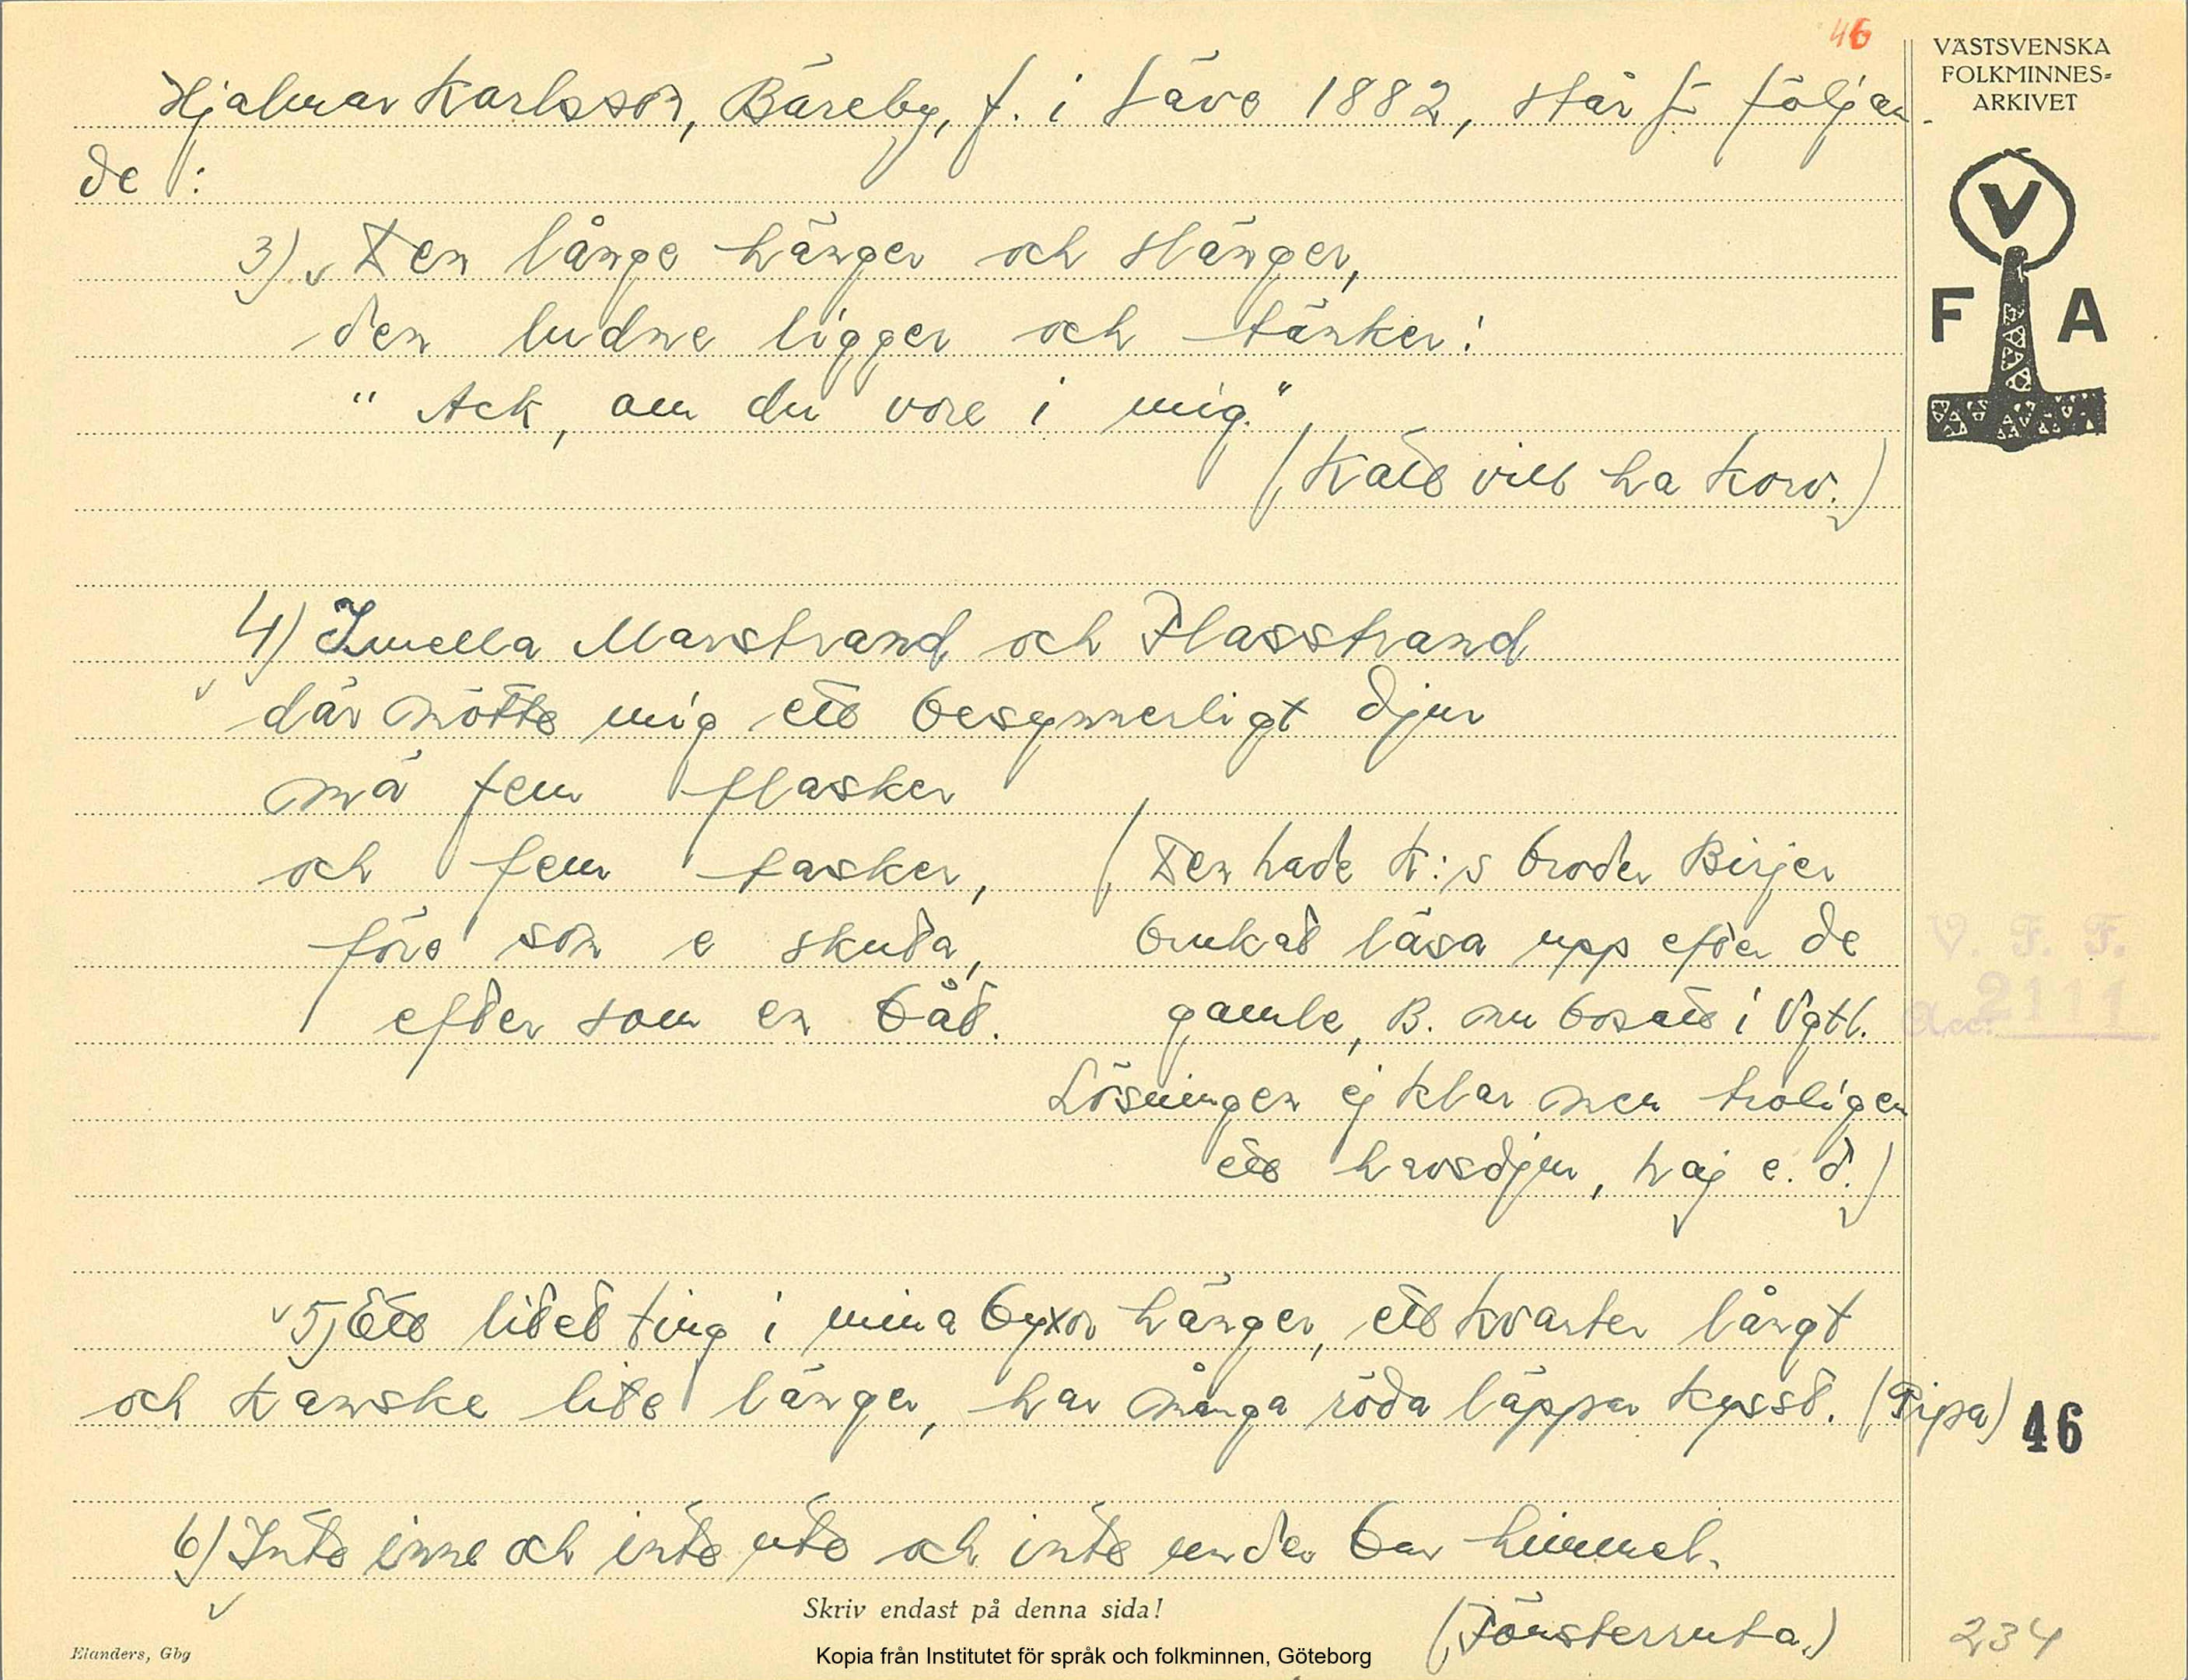 46
VÄSTSVENSKA
FOLKMINNES=
ARKIVET
Hjalmar Karlsson, Bäreby, f. i Säve 1882, står f följan-
de :
V
F A
3) Den långe hänger och slänger,
den ludne ligger och tänker:
"Ack, om du vore i mig."
(Katt vill ha korv.)
4) Imella Marstrand och Flasstrand
där mötte mig ett besynnerligt djur
mä fem flasker
och fem tasker,
före som e skuta,
efter som en båt.
(Den hade K:s broder Birjer
brukat läsa upp efter de
gamle, B. nu bosatt i Vgtl.
Lösningen ej klar men troligen
ett havsdjur, haj e. d.)
V. F. F.
Acc. 2111
5) Ett litet ting i mina byxor hänger, ett kvarter långt
och kanske lite länger, har många röda läppar kysst. (Pipa)
46
6) Inte inne och inte ute och inte under bar himmel.
(Fönsterruta.)
Skriv endast på denna sida!
Elanders, Gbg
Kopia från Institutet för språk och folkminnen, Göteborg
234